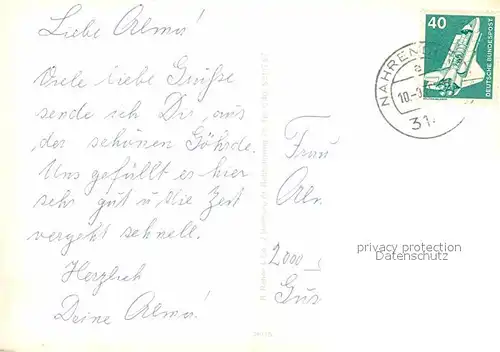 Liebe Alma!
Viele liebe Grüße
sende ich Dir, aus
der schönen Göhrde.
Uns gefällt es hier
sehr gut u die Zeit
vergeht schnell.
Herzlich
Deine Alma!
40
DEUTSCHE BUNDESPOST
NAHREN
10.-
31.
Frau
2000
privacy protection
Datenschutz